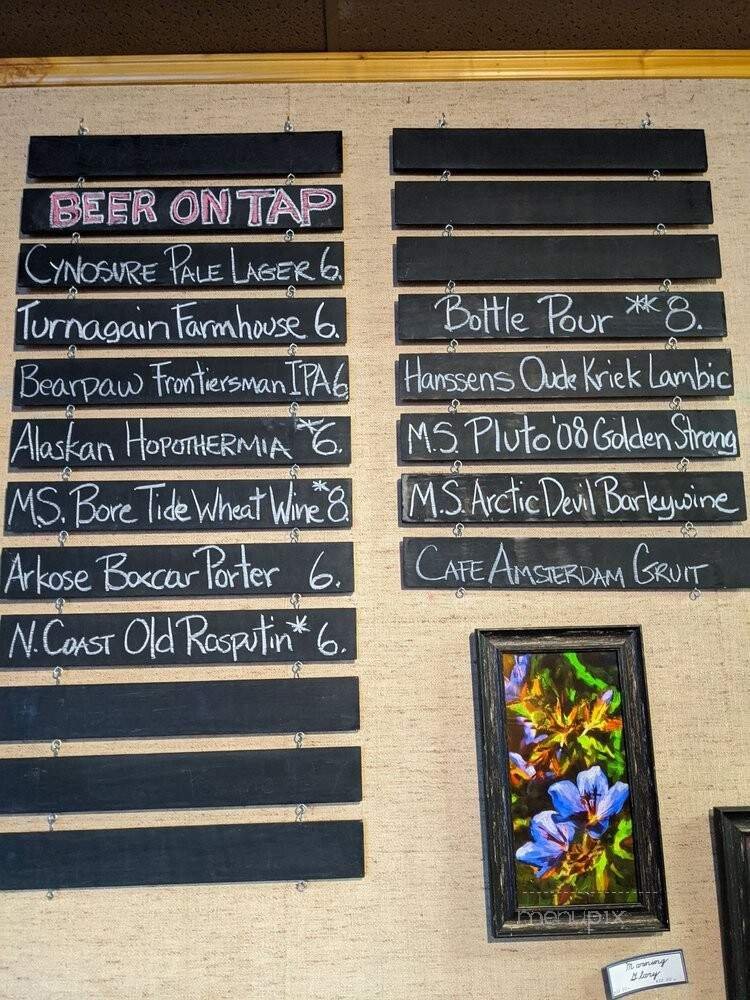 BEER ON TAP
CYNOSURE PALE LAGER 6.
Turnagain Farmhouse 6.
Bearpaw Frontiersman IPA 6
Alaskan HOPOTHERMIA *6.
M.S. Bore Tide Wheat Wine *8.
Arkose Boxcar Porter 6.
N. COAST Old Rasputin * 6.
Bottle Pour ** 8.
Hanssens Oude Kriek Lambic
M.S. Pluto '08 Golden Strong
M.S. Arctic Devil Barleywine
CAFE AMSTERDAM GRUIT
menupix
Morning
Glory